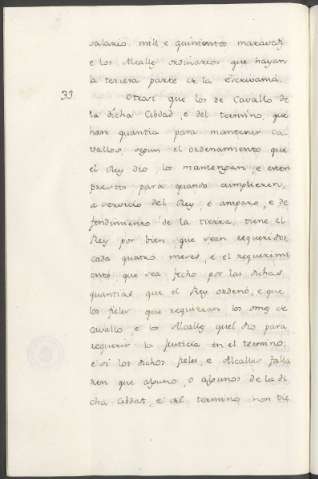 salario mill e quinientos maravedis
e los Alcalles ordinarios que hayan
a tercera parte de la escrivania.
33 Otrosi que los de Cavallo de
la dicha Cibdad e del termino, que
han quantia para mantener ca-
vallos segun el ordenamiento que
el Rey dio los mantengan, e esten
prestos para quando cumplieren,
a servicio del Rey e amparo, e de
fendimiento de la tierra, tiene el
Rey por bien que sean requeridos
cada quatro meses, e el requerimi
ento que sea fecho por las dichas
quantias que el Rey ordenó, e que
los fieles que requieran los omes de
cavallo e los Alcalles quel dio para
requerir la justicia en el termino,
e si los dichos fieles, e Alcalles falla
ren que alguno, o algunos de la di
cha Cibdat, e del termino non tie